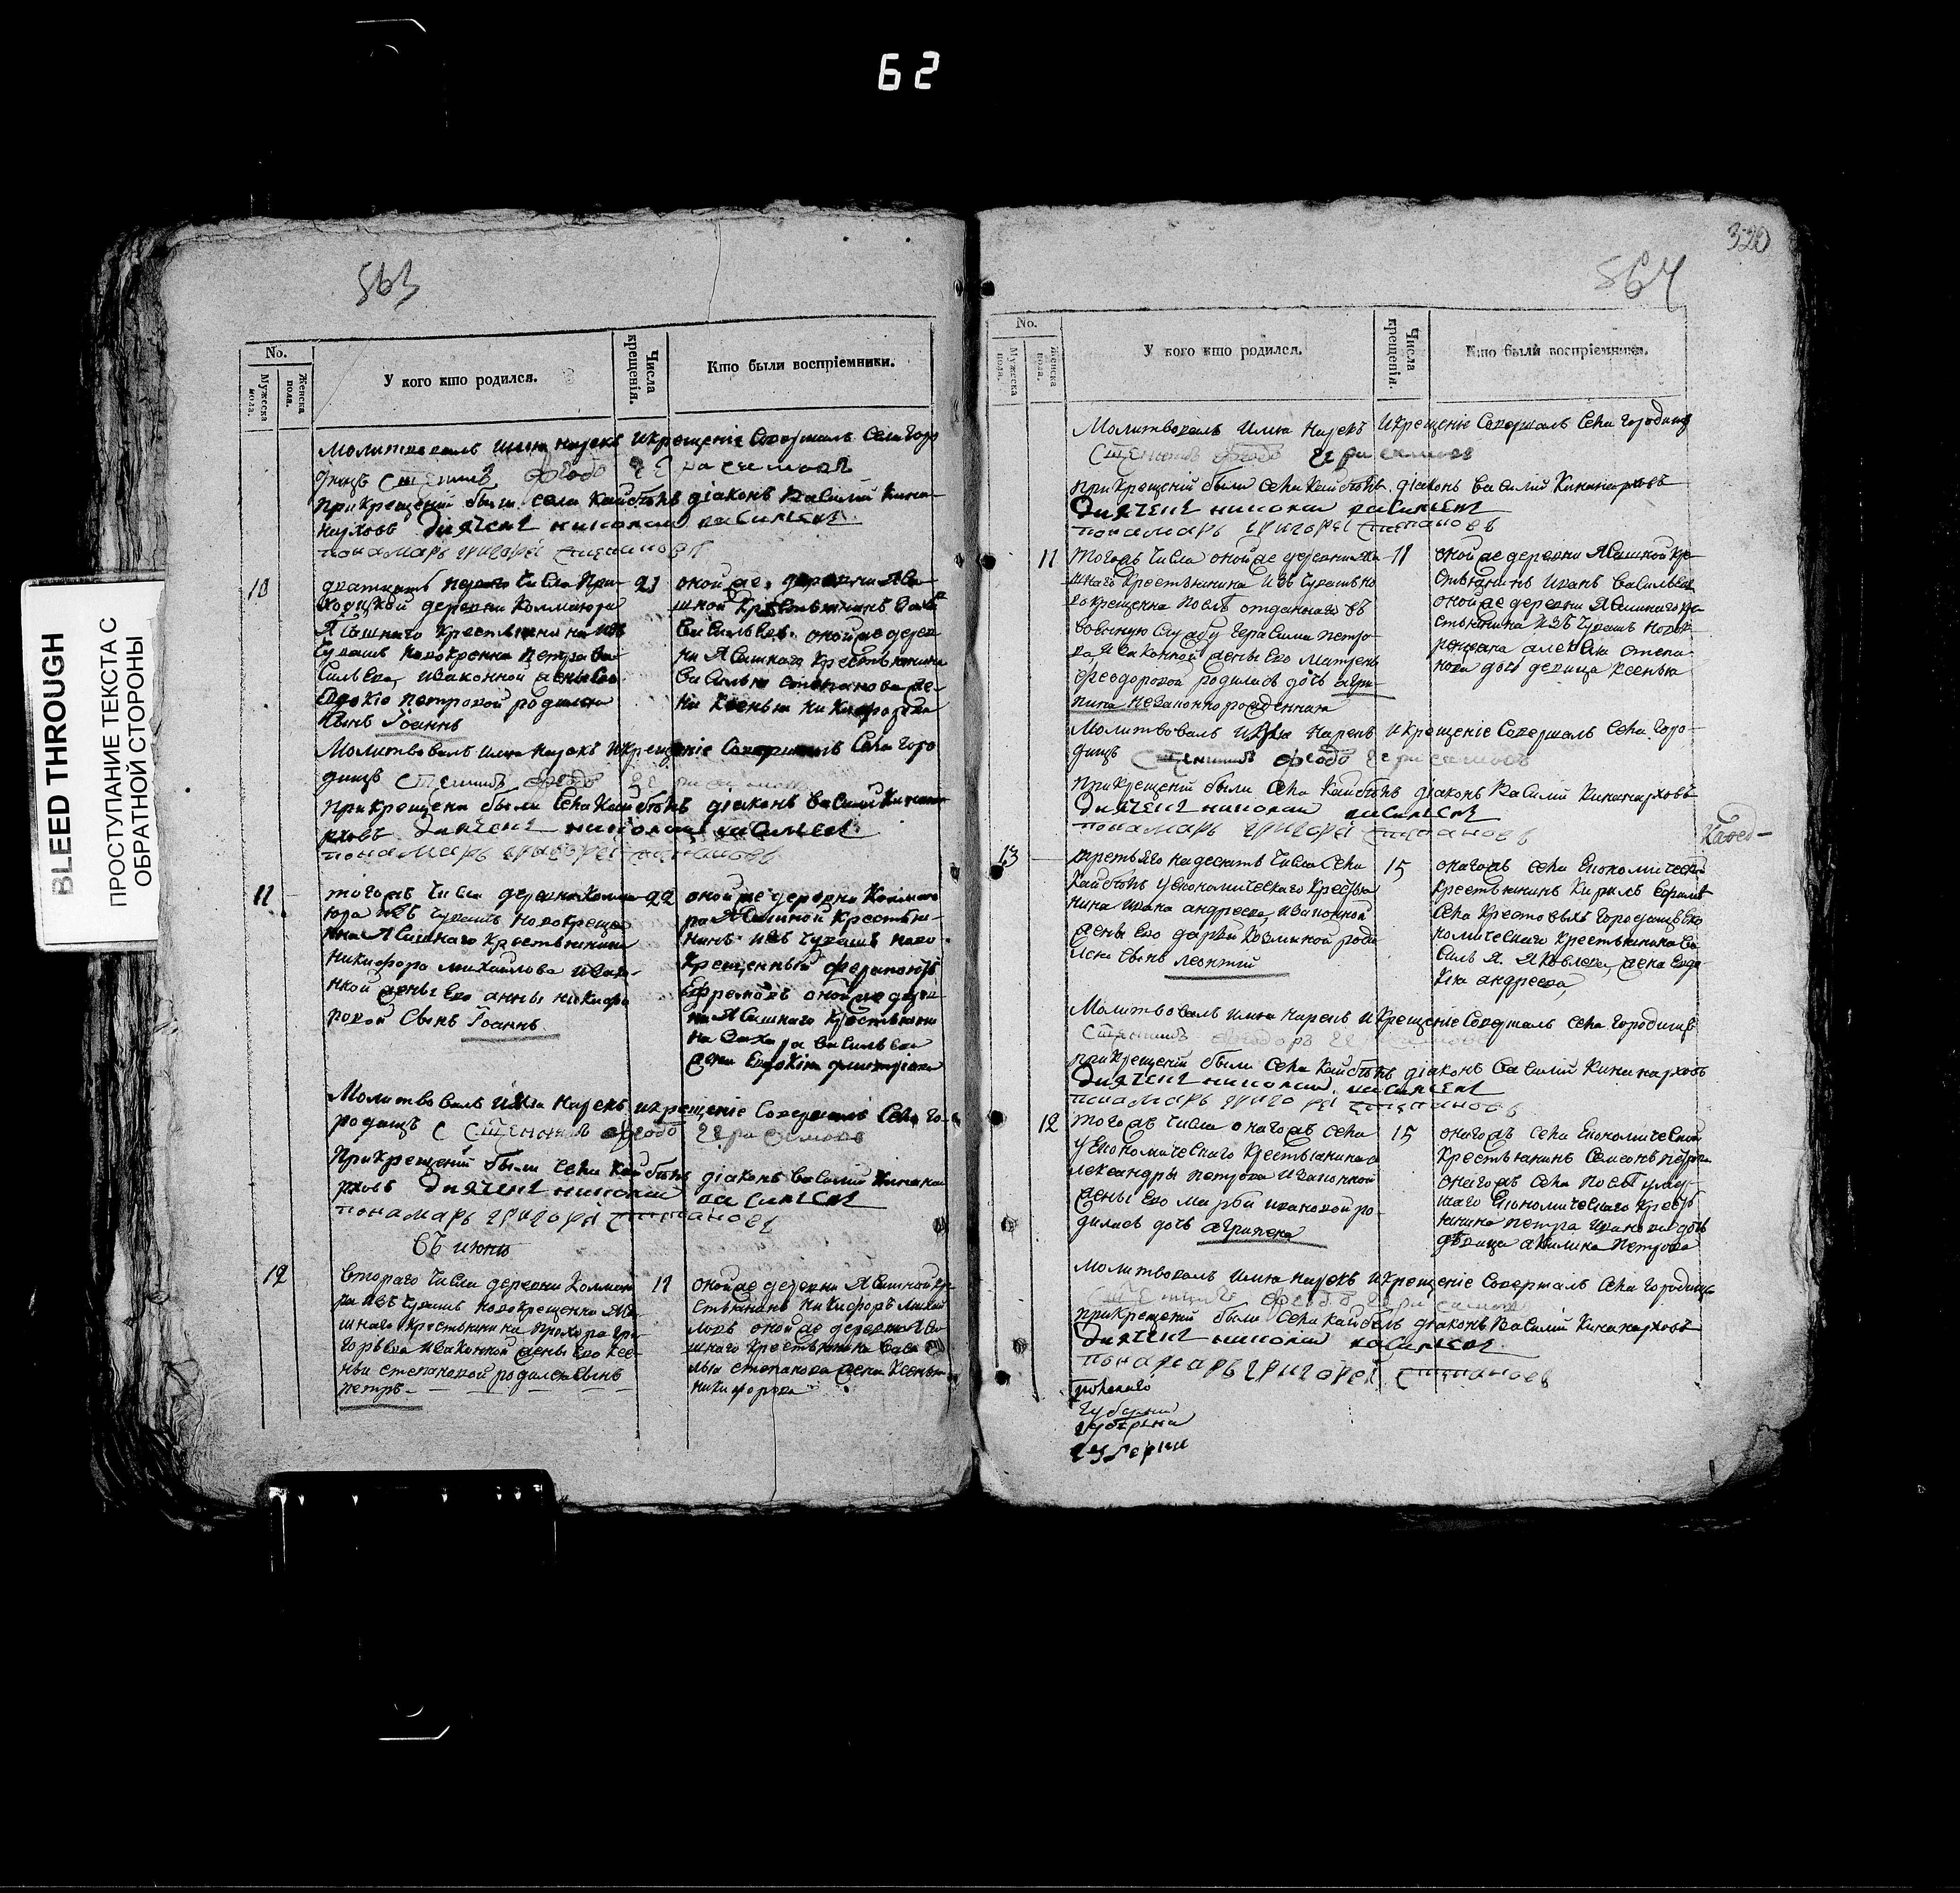 62
BLEED THROUGH
ПРОСТУПАНИЕ ТЕКСТА С
ОБРАТНОЙ СТОРОНЫ
563
No.
Мужеска пола.
Женска пола.
У кого кто родился.
Числа крещенія.
Кто были воспріемники.
Молитвовалъ имя нарекъ и крещеніе совершалъ села Горо
дищъ
При крещеніи были села Кайбѣлъ діаконъ Василий Кина
нарховъ дьячекъ николаи васильевъ
понамарь григореі степановъ
10
дватцать перваго числа При
ходцкой деревни Колмаюра
Ясашнаго Крестьянина изъ
Чувашъ новокрещена Петра Ва
сильева, и законной жены Ево
Евдокіи Петровой родился
Сынъ Іоаннъ
21
оной же деревни Яса
шной Крестьянинъ
Васильевъ оной же дерев
ни Ясашнаго Крестьянина
Василья Степанова же
на Ксенья Никифорова
Молитвовалъ имя нарекъ и крещеніе совершалъ села Горо
дищъ
При крещени были села Кайбѣлъ діаконъ Василий Кинана
рховъ дьячекъ николаи васильевъ
понамарь григореі степановъ
11
тогожъ числа деревни Колма
юра изъ чувашъ новокреще
на Ясашнаго Крестьянина
Никифора Михайлова и зако
нной жены Ево анны Никифо
ровой Сынъ Іоаннъ
22
оной же деревни Колмаю
ра Ясашной Крестья
нинъ изъ чувашъ ново
крещенный Ферапонтъ
Ефремовъ оной же дерев
ни Ясашнаго Крестьяни
на Захара Васильева
жена Евдокія Дмитріева
Молитвовалъ имя нарекъ и крещеніе совершалъ села Го
родищъ
При крещеній были села Кайбѣлъ діаконъ Василий Кинана
рховъ дьячекъ николаи васильевъ
понамарь григореі степановъ
въ июнѣ
12
втораго числа деревни Колмаю
ра изъ чувашъ новокрещена Яса
шнаго Крестьянина Прохора Гри
горьева и законной жены Ево Ксе
ньи степановой родился Сынъ
петръ
11
оной же деревни Ясашной Кре
стьянинъ Никифоръ Михай
ловъ оной же деревни Яса
шнаго Крестьянина Васи
лья степанова жена Ксенья
никифорова
320
564
No.
Мужеска пола.
Женска пола.
У кого кто родился.
Числа крещенія.
Кто были воспріемники.
Молитвовалъ имя нарекъ и крещеніе совершалъ села Городищъ
при крещеній были села Кайбѣлъ діаконъ василий Кинанарховъ
дьячекъ николаи васильевъ
понамарь григореі степановъ
11
тогожъ числа оной же деревни Яса
шнаго Крестьянина изъ чувашъ но
вокрещена послѣ отданнаго въ
военную Службу Герасима петро
ва, и законной жены Ево Матрены
феодоровой родилась дочь агри
пина незаконнорожденная
11
оной же деревни Ясашной Кре
стьянинъ Иванъ Васильевъ
оной же деревни Ясашнаго Кре
стьянина изъ чувашъ новок
рещена алексея степа
нова дочь девица Ксенья
Молитвовалъ имя нарекъ и крещеніе совершалъ села Горо
дищъ
При крещеній были села Кайбѣлъ діаконъ Василий Кинанарховъ
дьячекъ николаи васильевъ
понамарь григореі степановъ
13
третьяго надесять числа села
Кайбѣлъ у Економическаго Крестья
нина ивана андреева, и законной
жены Ево дарьи Козминой роди
лся Сынъ леонтій
15
онагожъ села Економической
Крестьянинъ Кирилъ
села Крестовыхъ Городищъ Еко
номическаго Крестьянина Ва
силья Яковлева, жена Евдо
кія андреева
Молитвовалъ имя нарекъ и крещеніе совершалъ села Городищъ
при Крещеній были села Кайбѣлъ діаконъ Василий Кинанарховъ
дьячекъ николаи васильевъ
понамарь григореі степановъ
12
тогожъ числа онагожъ села
у Економическаго Крестьянина а
лександры петрова и законной
жены Ево марфы ивановой ро
дилась дочь агрипена
15
онагожъ села Економической
Крестьянинъ Семенъ петровъ
онагожъ села послѣ умер
шаго Економическаго Кресть
янина петра Иванова дочь
дѣвица акилина Петрова
Молитвовалъ имя нарекъ и крещеніе совершалъ села Городищъ
при крещеній были села Кайбѣлъ діаконъ Василий Кинанарховъ
дьячекъ николаи васильевъ
понамарь григореі степановъ
губернии